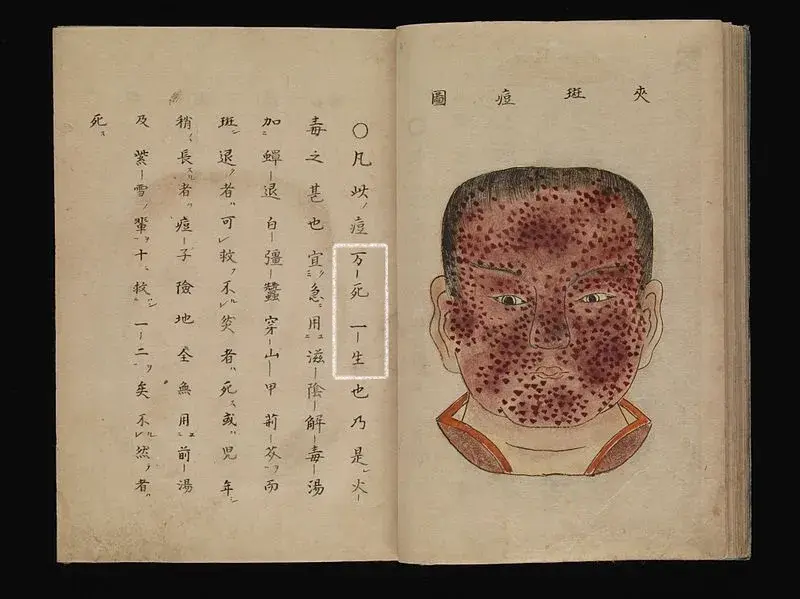 夾斑痘圖
〇凡此痘万死一生也乃是火
毒之甚也宜急用滋陰解毒湯
加蟬退白彊蠶穿山甲荊芥而
斑退者可救不然者死或児年
稍長者痘子險地全無用前湯
及紫雪輩十救一二矣不然者
死